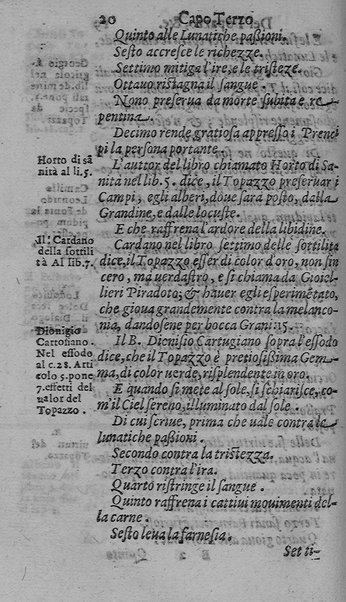 20 Capo Terzo
Quinto alle Lunatiche paßioni.
Sesto accresce le richezze.
Settimo mitiga l'ire, e le tristeze.
Ottauo ristagna il sangue.
Nono preserua da morte subita e re-
pentina.
Decimo rende gratiosa appresso i Prenci
pi la persona portante.
Horto di sa
nità al li.5.
L'auttor del libro chiamato Horto di Sa
nità nel lib. 5. dice, il Topazzo preseruar i
Campi, egli alberi, doue sarà posto, dalla
Grandine, e dalle locuste.
E che raffrena l'ardore della libidine.
Il Cardano
della sottili
tà Al lib.7.
Cardano nel libro settimo delle sottilità
dice, il Topazzo esser di color d'oro, non sin
cero, ma verdastro, e si chiama da Gioiel-
lieri Piradoto; & hauer egli esperimẽtato,
che gioua grandemente contra la melanco-
nia, dandosene per bocca Grani 15.
Dionigio
Cartosiano.
Nel essodo
al c.28. Arti
colo 5. pone
7. effetti del
valor del
Topazzo.
Il B. Dionisio Cartugiano sopra l'essodo
dice, che il Topazzo è pretiosissima Gem-
ma, di color verde, risplendente in oro.
E quando si mete al sole, si schiarisce, co-
m'il Ciel sereno, illuminato dal sole.
Di cui scriue, prima che vale contra le
lunatiche paßioni.
Secondo contra la tristezza.
Terzo contra l'ira.
Quarto ristringe il sangue.
Quinto raffrena i cattiui mouimenti del-
la carne.
Sesto leua la farnesia.
Set ti-